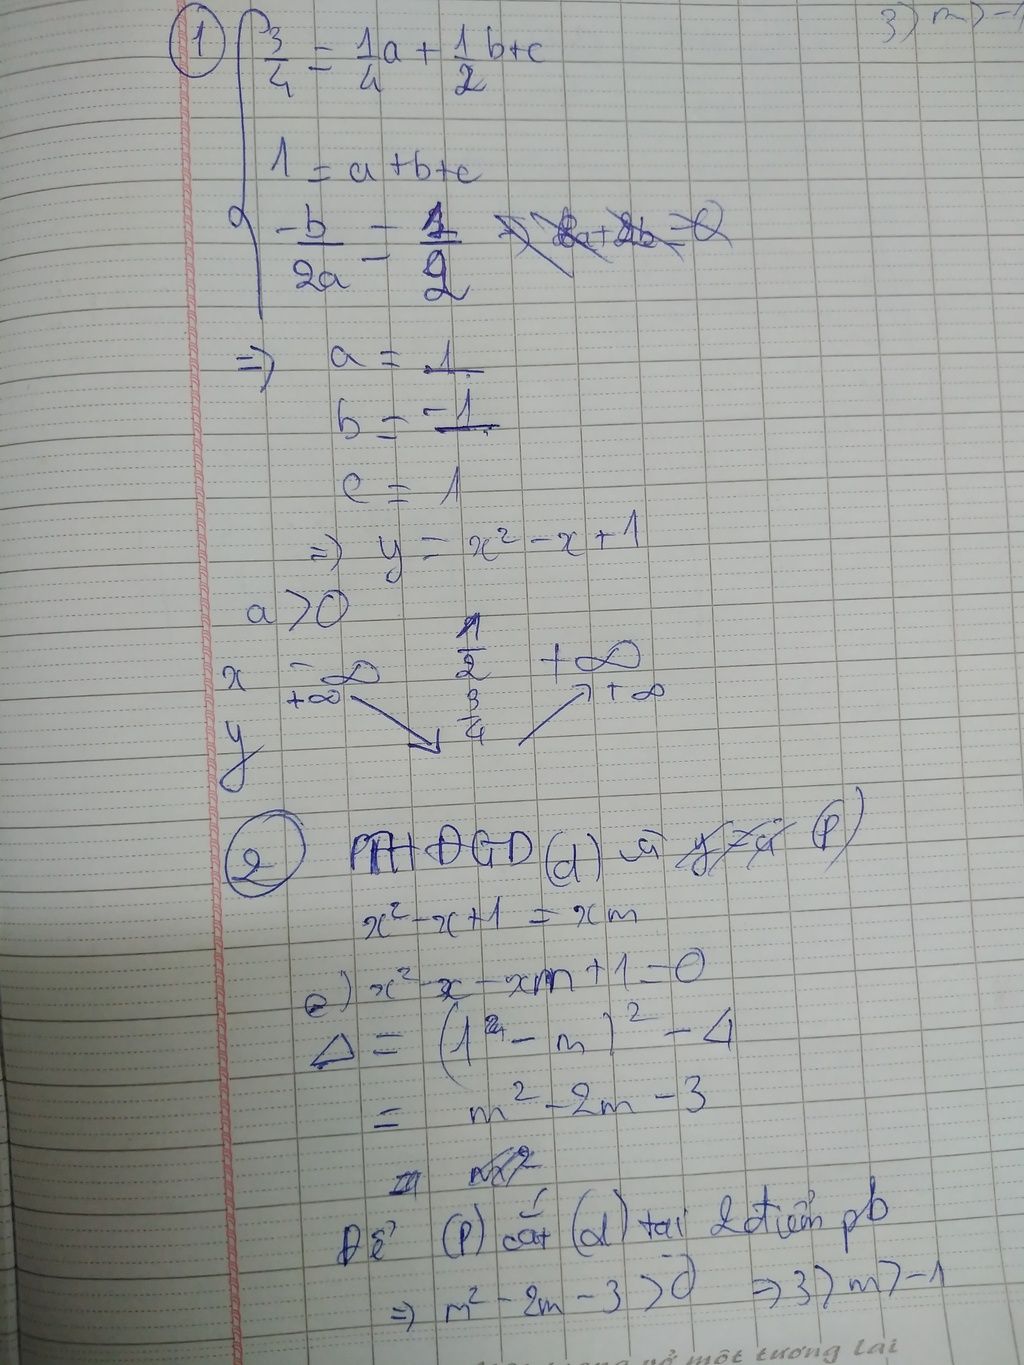 3) m > -1
① { 3/4 = 1/4 a + 1/2 b + c
1 = a + b + c
-b/2a = 1/2
=> a = 1
b = -1
c = 1
=> y = x² - x + 1
a > 0
x -∞ 1/2 +∞
+∞ 3/4 +∞
y
② PTHĐGĐ (d) và (P)
x² - x + 1 = xm
e) x² - x - xm + 1 = 0
Δ = (1 - m)² - 4
= m² - 2m - 3
Để (P) cắt (d) tại 2 điểm pb
=> m² - 2m - 3 > 0 => 3 > m > -1
một tương lai